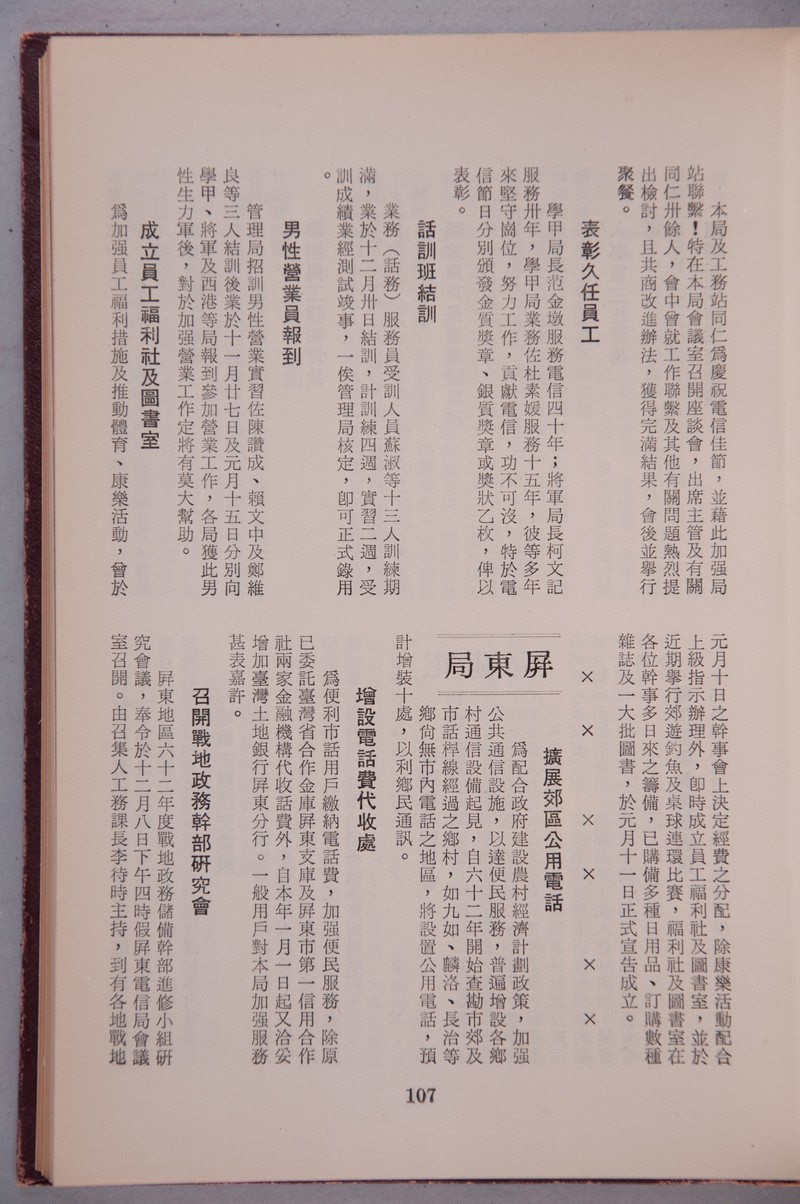 本局及工務站同仁爲慶祝電信佳節，並藉此加强局
站聯繫！特在本局會議室召開座談會，出席主管及有關
同仁卅餘人，會中曾就工作聯繫及其他有關問題熱烈提
出檢討，且共商改進辦法，獲得完滿結果，會後並舉行
聚餐。
表彰久任員工
學甲局長范金墩服務電信四十年；將軍局長柯文記
服務卅年，學甲局業務佐杜素嫒服務十五年，彼等多年
來堅守崗位，努力工作，貢獻電信，功不可沒，特於電
信節日分別頒發金質獎章、銀質獎章或獎狀乙枚，俾以
表彰。
話訓班結訓
業務（話務）服務員受訓人員蘇淑等十三人訓練期
滿，業於十二月卅日結訓，計訓練四週，實習二週，受
訓成績業經測試竣事，一俟管理局核定，卽可正式錄用
。
男性營業員報到
管理局招訓男性營業實習佐陳讚成、賴文中及鄭維
良等三人結訓後業於十一月廿七日及元月十五日分別向
學甲、將軍及西港等局報到參加營業工作，各局獲此男
性生力軍後，對於加强營業工作定將有莫大幫助。
成立員工福利社及圖書室
爲加强員工福利措施及推動體育、康樂活動，曾於
元月十日之幹事會上決定經費之分配，除康樂活動配合
上級指示辦理外，卽時成立員工福利社及圖書室，並於
近期舉行郊遊釣魚及桌球連環比賽，福利社及圖書室在
各位幹事多日來之籌備，已購備多種日用品、訂購數種
雜誌及一大批圖書，於元月十一日正式宣告成立。
× × × × × ×
屏東局
擴展郊區公用電話
爲配合政府建設農村經濟計劃政策，加强
公共通信設施，以達便民服務，普遍增設各鄉
村通信設備起見，自六十二年開始查勘市郊及
市話桿線經過之鄉村，如九如、麟洛、長治等
鄉尙無市內電話之地區，將設置公用電話，預
計增裝十處，以利鄉民通訊。
增設電話費代收處
爲便利市話用戶繳納電話費，加强便民服務，除原
已委託臺灣省合作金庫屏東支庫及屏東市第一信用合作
社兩家金融機構代收話費外，自本年一月一日起又洽妥
增加臺灣土地銀行屏東分行。一般用戶對本局加强服務
甚表嘉許。
召開戰地政務幹部硏究會
屏東地區六十二年度戰地政務儲備幹部進修小組硏
究會議，奉令於十二月八日下午四時假屏東電信局會議
室召開。由召集人工務課長李待時主持，到有各地戰地
107